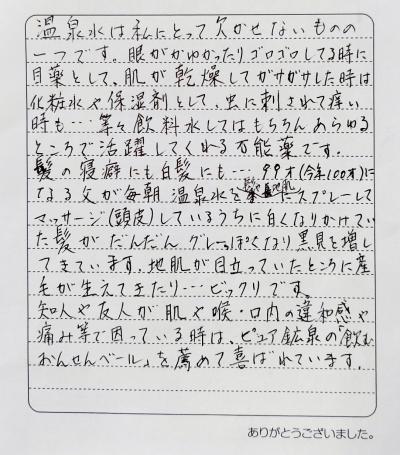 温泉水は私にとって欠かせないものの
一つです。眼がかゆかったりゴロゴロしてる時に
目薬として、肌が乾燥してガサガサした時は
化粧水や保湿剤として、虫に刺されて痒い
時も…等々飲料水してはもちろんあらゆる
ところで活躍してくれる万能薬です。
髪の寝癖にも白髪にも…99才(今年100才)に
なる父が毎朝温泉水を髪と地肌にスプレーして
マッサージ(頭皮)しているうちに白くなりかけてい
た髪がだんだんグレーっぽくなり黒具を増し
てきています。地肌が目立っていたところに産
毛が生えてきたり…ビックリです。
知人や友人が肌や喉・口内の違和感や
痛み等で困っている時は、ピュア鉱泉の「飲む
おんせんベール」を薦めて喜ばれています。
ありがとうございました。